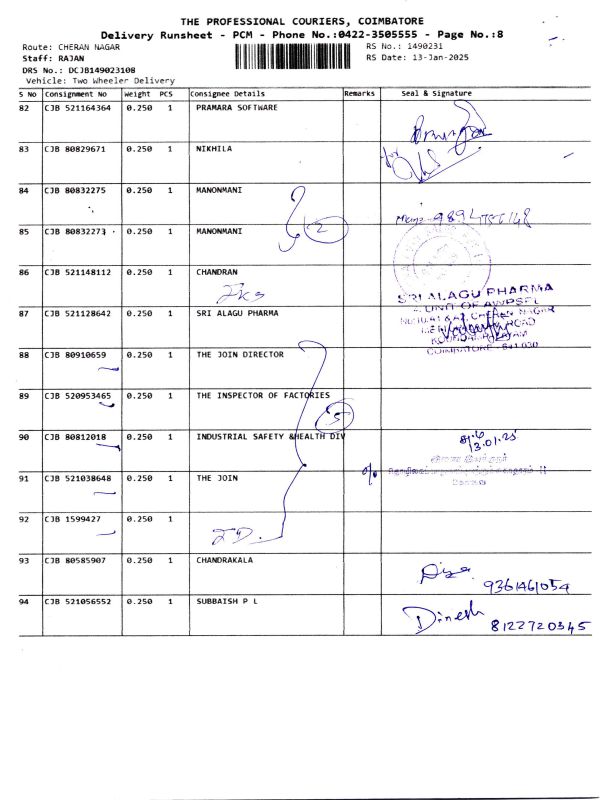 THE PROFESSIONAL COURIERS, COIMBATORE
Delivery Runsheet - PCM - Phone No.:0422-3505555 - Page No.:8
Route: CHERAN NAGAR RS No.: 1490231
Staff: RAJAN RS Date: 13-Jan-2025
DRS No.: DCJB149023108
Vehicle: Two Wheeler Delivery
S No Consignment No Weight PCS Consignee Details Remarks Seal & Signature
82 CJB 521164364 0.250 1 PRAMARA SOFTWARE
83 CJB 80829671 0.250 1 NIKHILA
for
84 CJB 80832275 0.250 1 MANONMANI
2
85 CJB 80832273 0.250 1 MANONMANI
86 CJB 521148112 0.250 1 CHANDRAN
SRI ALAGU PHARMA
A UNIT OF AWPSPL
87 CJB 521128642 0.250 1 SRI ALAGU PHARMA
CHERAN NAGAR
ROAD
COIMBATORE - 641 030
88 CJB 80910659 0.250 1 THE JOIN DIRECTOR
89 CJB 520953465 0.250 1 THE INSPECTOR OF FACTORIES
5
90 CJB 80812018 0.250 1 INDUSTRIAL SAFETY &HEALTH DIV
13.01.25
இணை இயக்குநர்
கோவை
91 CJB 521038648 0.250 1 THE JOIN
92 CJB 1599427 0.250 1
J.D.
93 CJB 80585907 0.250 1 CHANDRAKALA
9361461054
94 CJB 521056552 0.250 1 SUBBAISH P L
Dinesh 8122720345